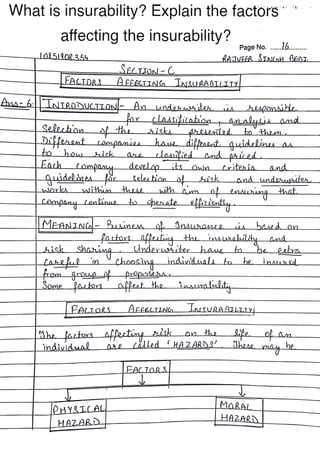 What is insurability? Explain the factors
affecting the insurability?
Page No. ......16.........
10151908354
RAJVEER SINGH BEDI
SECTION-C
FACTORS AFFECTING INSURABILITY
Ans-6: INTRODUCTION- An underwriter is responsible
for classification, analysis and
Selection of the risks presented to them.
Different companies have different guidelines as
to how risk are classified and priced.
Each company develop its own criteria and
guidelines for selection of risk and underwriter
works within these with aim of ensuring that
company continue to operate efficiently.
MEANING- Business of Insurance is based on
factors affecting the insurability and
risk sharing. Underwriter have to be extra
careful in choosing individuals to be insured
from group of proposers.
Some factors affect the insurability.
FACTORS AFFECTING INSURABILITY
The factors affecting risk on the life of an
individual are called 'HAZARDS'. These may be
FACTORS
PHYSICAL
HAZARD
MORAL
HAZARD